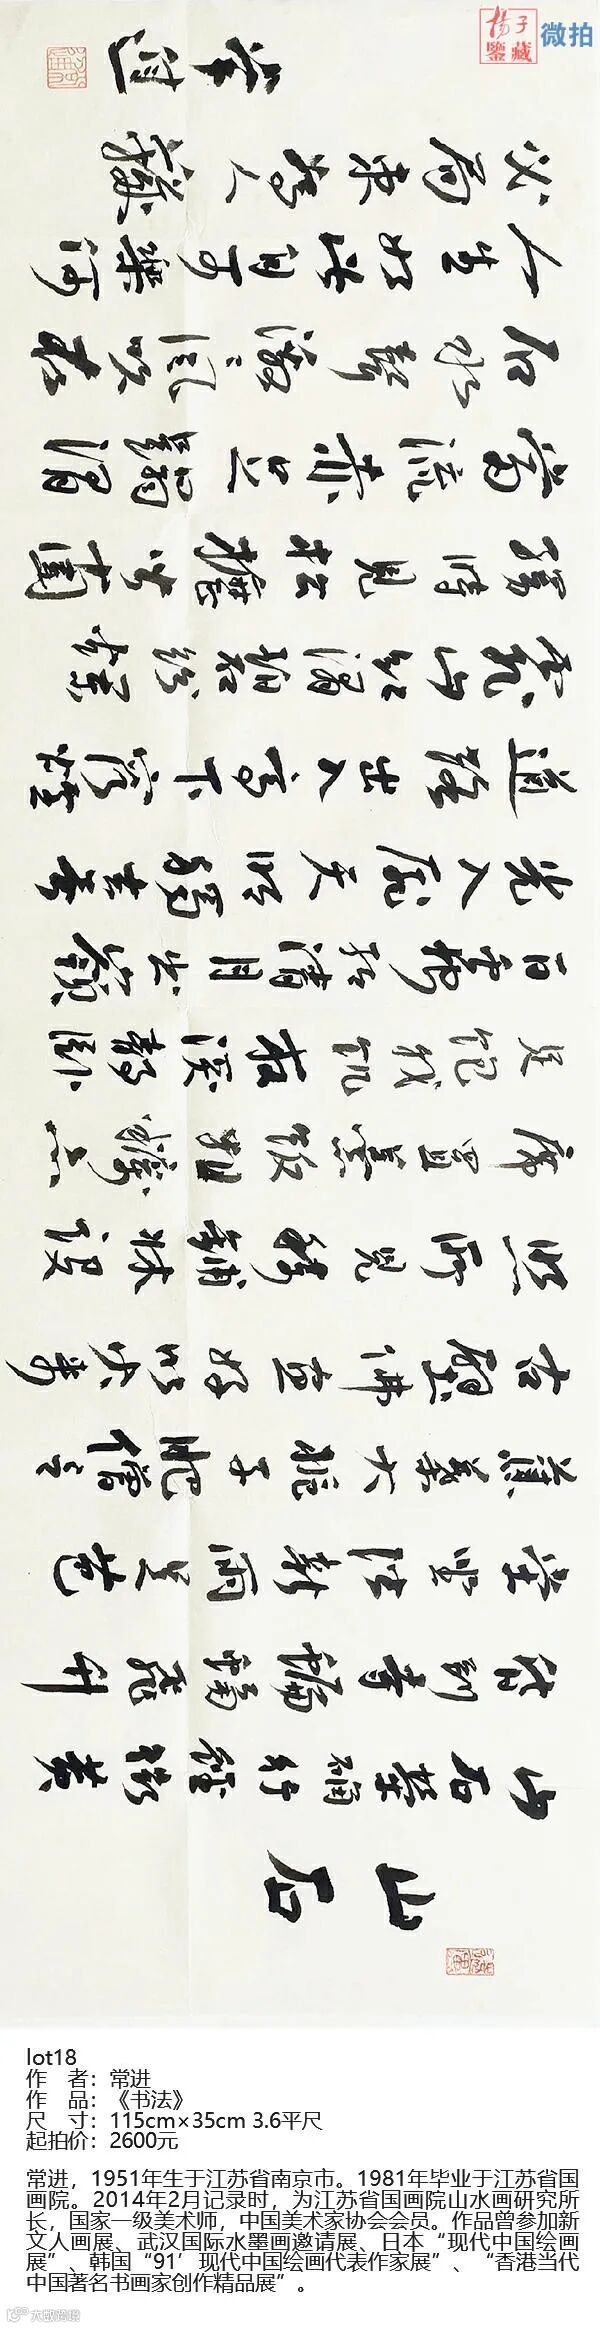 揚子
鑒藏
微拍
山石
山石犖确行徑微黃
昏到寺蝙蝠飛升
堂坐階新雨足芭
蕉葉大梔子肥僧言
古壁佛畫好以火來
照所見稀鋪床拂
席置羹飯疏糲亦
足飽我飢夜深靜臥
百蟲絕清月出嶺
光入扉天明獨去無
道路出入高下窮煙
霏山紅澗碧紛爛
漫時見松櫪皆十圍
當流赤足蹋澗
石水聲激激風吹衣
人生如此自可樂何
必局束為人鞿
常進
lot18
作　者：常进
作　品：《书法》
尺　寸：115cm×35cm 3.6平尺
起拍价：2600元
常进，1951年生于江苏省南京市。1981年毕业于江苏省国
画院。2014年2月记录时，为江苏省国画院山水画研究所
长，国家一级美术师，中国美术家协会会员。作品曾参加新
文人画展、武汉国际水墨画邀请展、日本“现代中国绘画
展”、韩国“91’现代中国绘画代表作家展”、“香港当代
中国著名书画家创作精品展”。